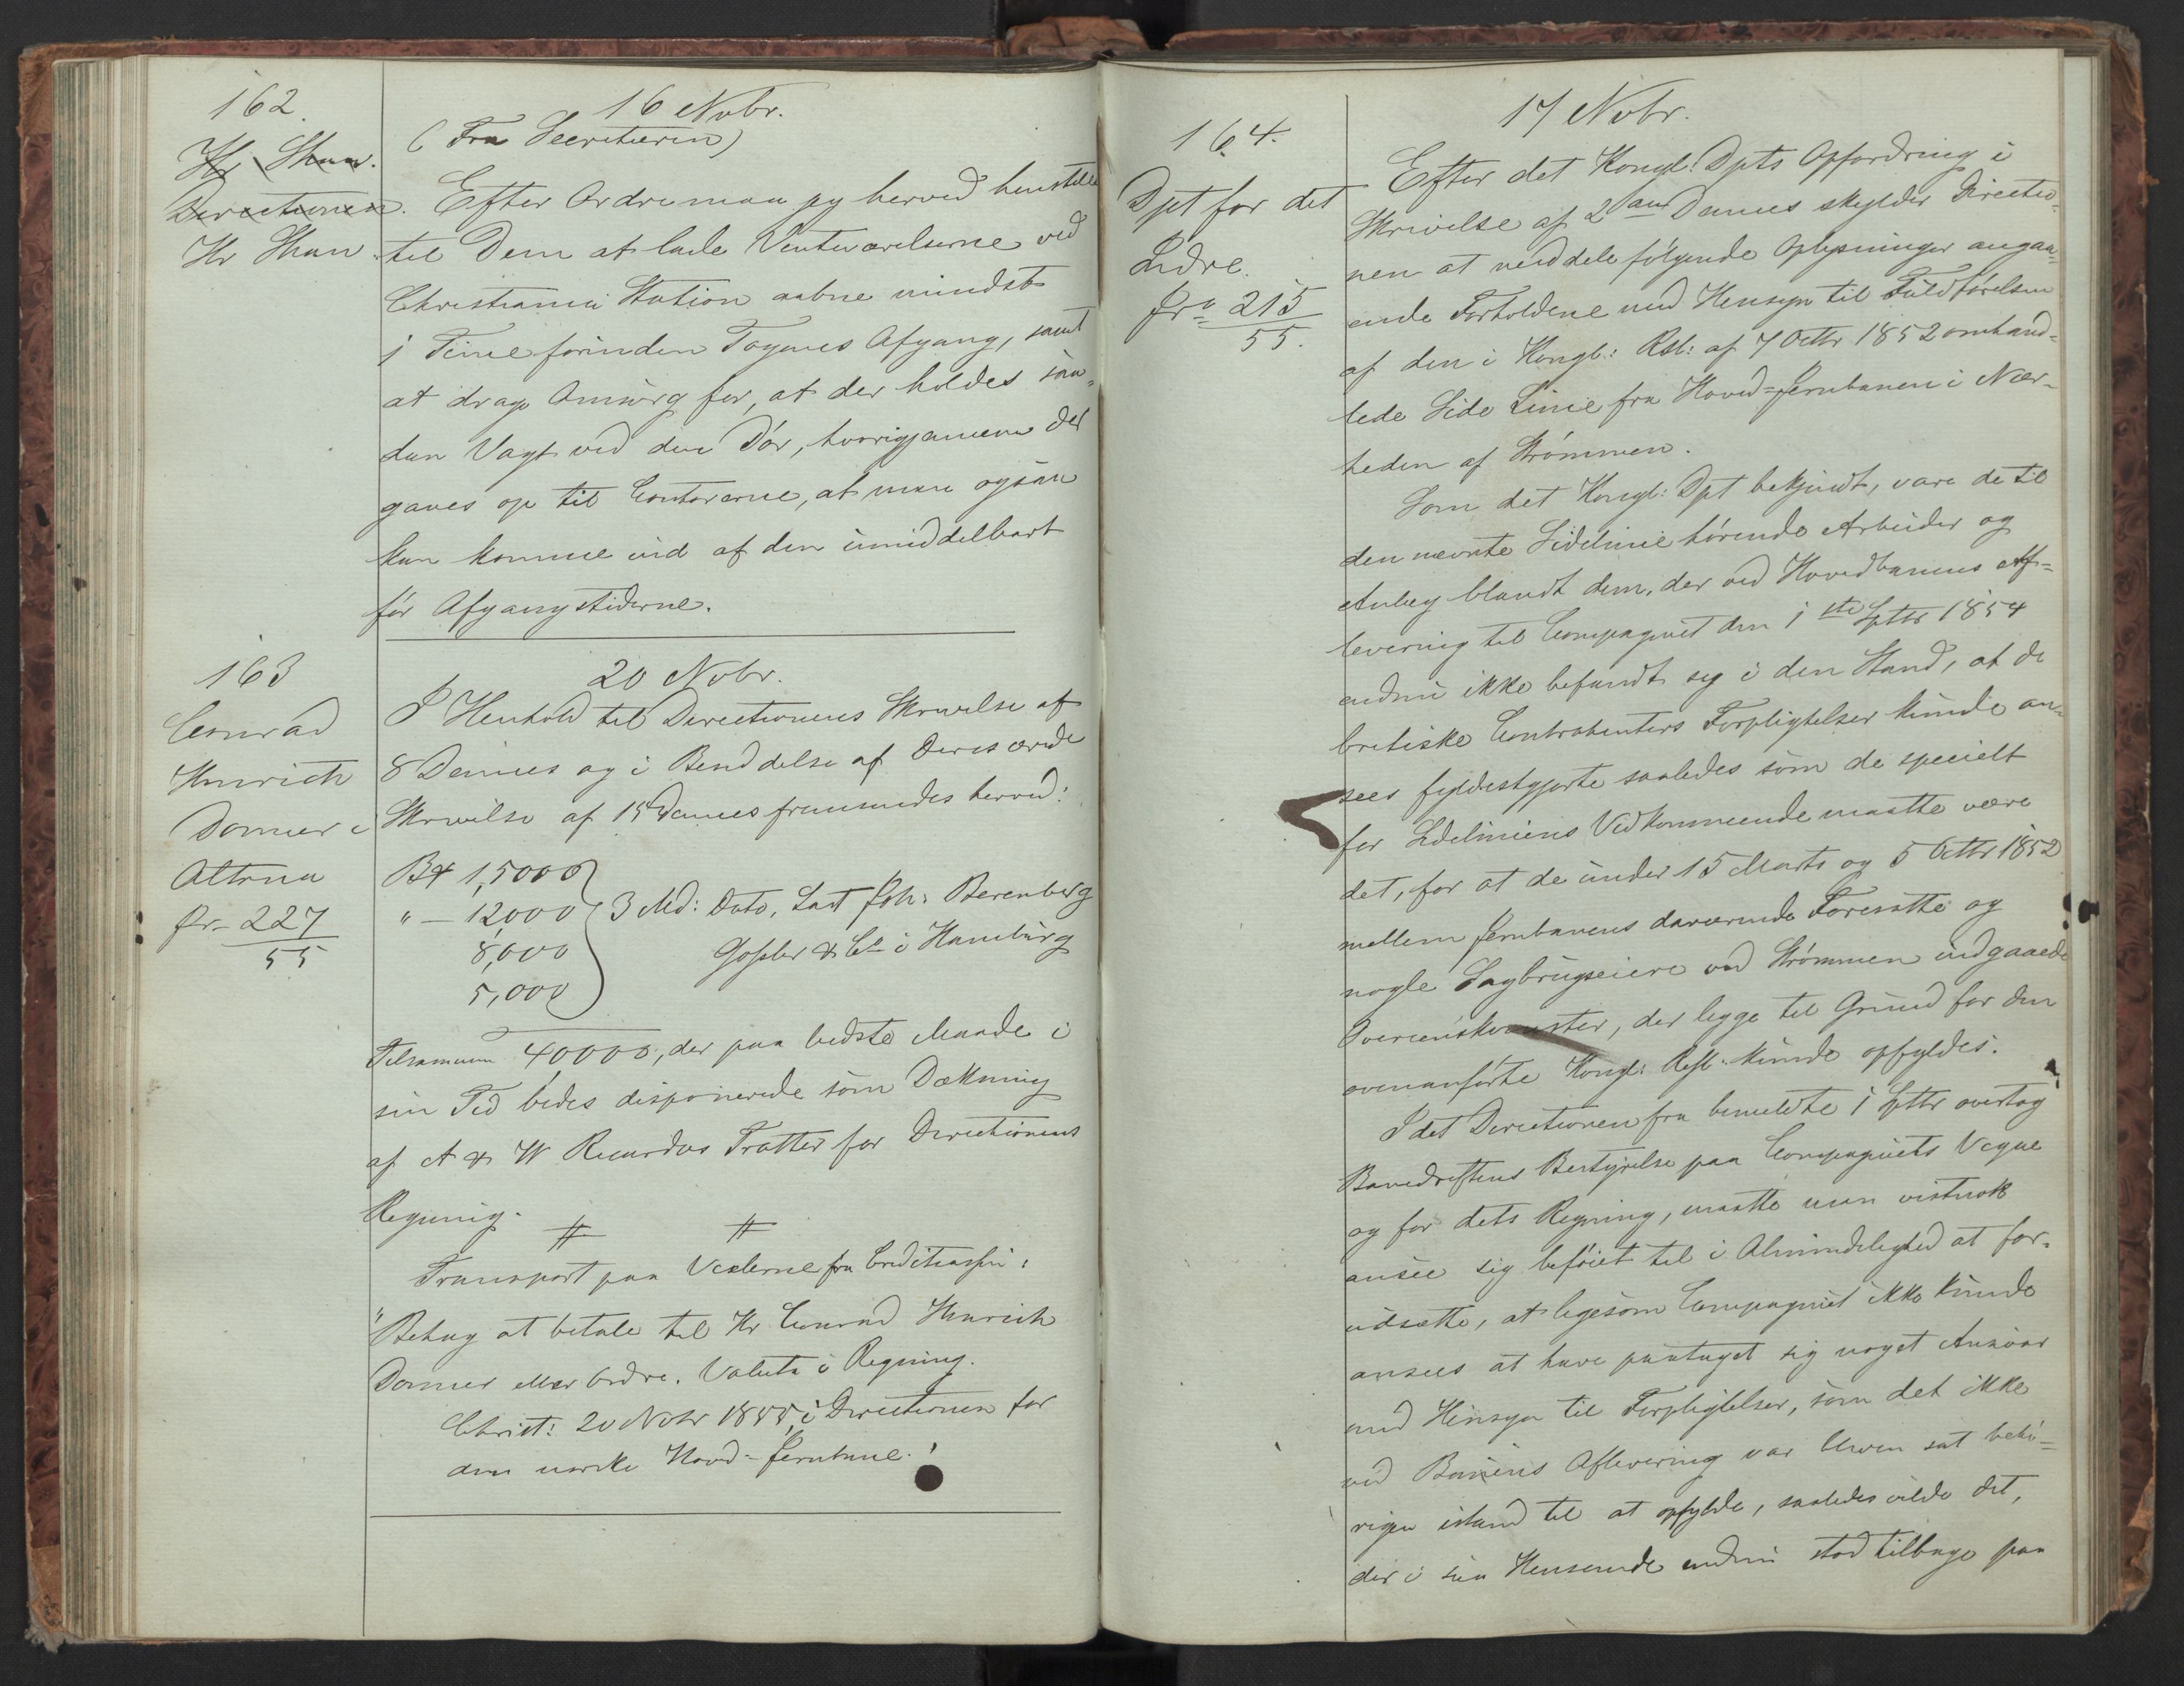 162.
Hr Shaw.
Directionen.
Hr Shaw.
16 Novbr.
(Fra Secretairen)
Efter Ordre maa jeg herved henstille
til Dem at lade Venteværelserne ved
Christiania Station aabne mindst
1 Time forinden Togenes Afgang, samt
at drage Omsorg for, at der holdes saa-
dan Vagt ved den Dör, hvorigjennem der
gaaes op til Contorerne, at man ogsaa
kan komme ind af den umiddelbart
för Afgangstiderne.
163
Conrad
Hinrich
Donner i
Altona
Jr- 227
55
20 Novbr.
I Henhold til Directionens Skrivelse af
8 Dennes og i Besiddelse af Deres ærede
Skrivelse af 15 Dennes fremsendes herved:
B# 15000
" — 12,000
8,000
5,000
3 Md: Dato, Last Joh: Berenberg
Gossler & Co i Hamburg
Tilsammen 40000, der paa bedste Maade i
sin Tid bedes disponerede som Dækning
af A & W Ricardos Tratter for Directionens
Regning.
# #
Transport paa Vexlerne fra Creditcassen:
"Behag at betale til Hr Conrad Hinrich
Donner eller Ordre. Valuta i Regning.
Christ: 20 Novbr 1855, i Directionen for
den norske Hoved-Jernbane."
164.
Dpt for det
Indre.
Jrn 215
55.
17 Novbr.
Efter det Kongl: Dpts Opfordring i
Skrivelse af 2den Dennes skylder Directio-
nen at meddele følgende Oplysninger angaa-
ende Forholdene med Hensyn til Fuldförelsen
af den i Kongl: Resl: af 7 Octbr 1852 omhand-
lede Side Linie fra Hoved-Jernbanen i Nær-
heden af Strömmen.
Som det Kongl: Dpt bekjendt, vare de til
den nævnte Sidelinie hörende Arbeider og
Anlæg blandt dem, der ved Hovedbanens Af-
levering til Compagniet den 1ste Septbr 1854
endnu ikke befandt sig i den Stand, at de
britiske Contrahenters Forpligtelser kunde an-
sees fyldestgjorte saaledes som de specielt
for Sideliniens Vedkommende maatte være
det, for at de under 15 Marts og 5 Octbr 1852
mellem Jernbanens daværende Foresatte og
nogle Sagbrugseiere ved Strömmen indgaaede
Overeenskomster, der ligge til Grund for den
ovenanförte Kongl: Resl: kunde opfyldes.
Idet Directionen fra bemeldte 1 Septbr overtog
Banedriftens Bestyrelse paa Compagniets Vegne
og for dets Regning, maatte man vistnok
ansee sig beföiet til i Almindelighed at for-
udsætte, at ligesom Compagniet ikke kunde
ansees at have paataget sig noget Ansvar
med Hensyn til Forpligtelser, som det ikke
ved Banens Aflevering var bleven sat behö-
rigen istand til at opfylde, saaledes vilde det,
der i saa Henseende endnu stod tilbage paa